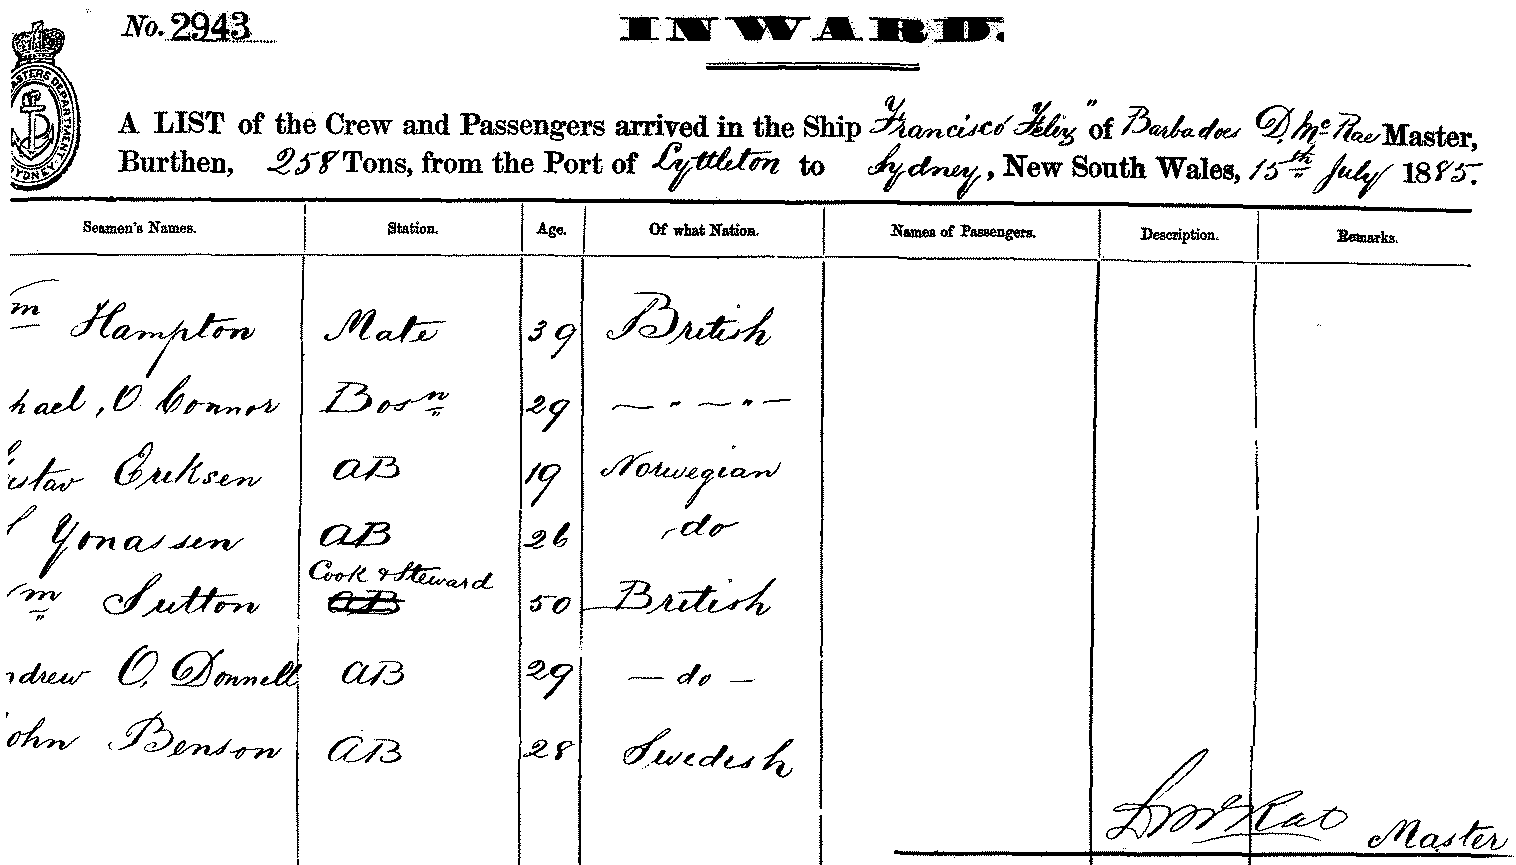 No. 2943
INWARD.
A LIST of the Crew and Passengers arrived in the Ship Francisco Feliz" of Barbadoes D. McRae Master,
Burthen, 258 Tons, from the Port of Lyttleton to Sydney, New South Wales, 15th July 1885.
Seamen's Names. Station. Age. Of what Nation. Names of Passengers. Description. Remarks.
m Hampton Mate 39 British
hael, O Connor Bosn 29 — " — " —
ustav Eriksen AB 19 Norwegian
l Yonassen AB 26 do
Cook & Steward
m Sutton AB 50 British
ndrew O, Donnell AB 29 — do —
John Benson AB 28 Swedish
D McRae Master